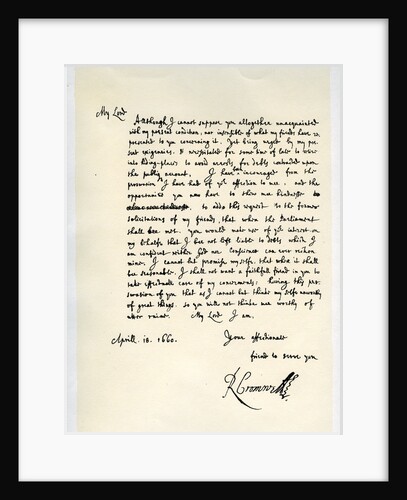 My Lord
Although I cannot suppose you altogether unacquainted
with my present condition, nor insensible of what my friends have re
presented to you concerning it. Yet being urged by my pre
sent exigencies, & necessitated for some time of late to retire
into hiding-places to avoid arrests for debts contracted upon
the publiq account, I have been incouraged from the
perswasion I have had of yor affection to mee. and the
opportunitie you now have to show me kindness
to adde this request to the former
solicitations of my friends, that when the Parliament
shall bee met. you would make use of yor interest on
my behalfe that I bee not left liable to debts which I
am confident neither God nor Conscience can ever reckon
mine. I cannot but promise my selfe, that when it shall
bee seasonable. I shall not want a faithfull friend in you to
take effectuall care of my concernments; having this per
swation of you that as I cannot but think my selfe unworthy
of great things. so you will not think mee worthy of
utter ruine. My Lord I am.
Aprill 18. 1660. Your affectionate
friend to serve you
R Cromwell